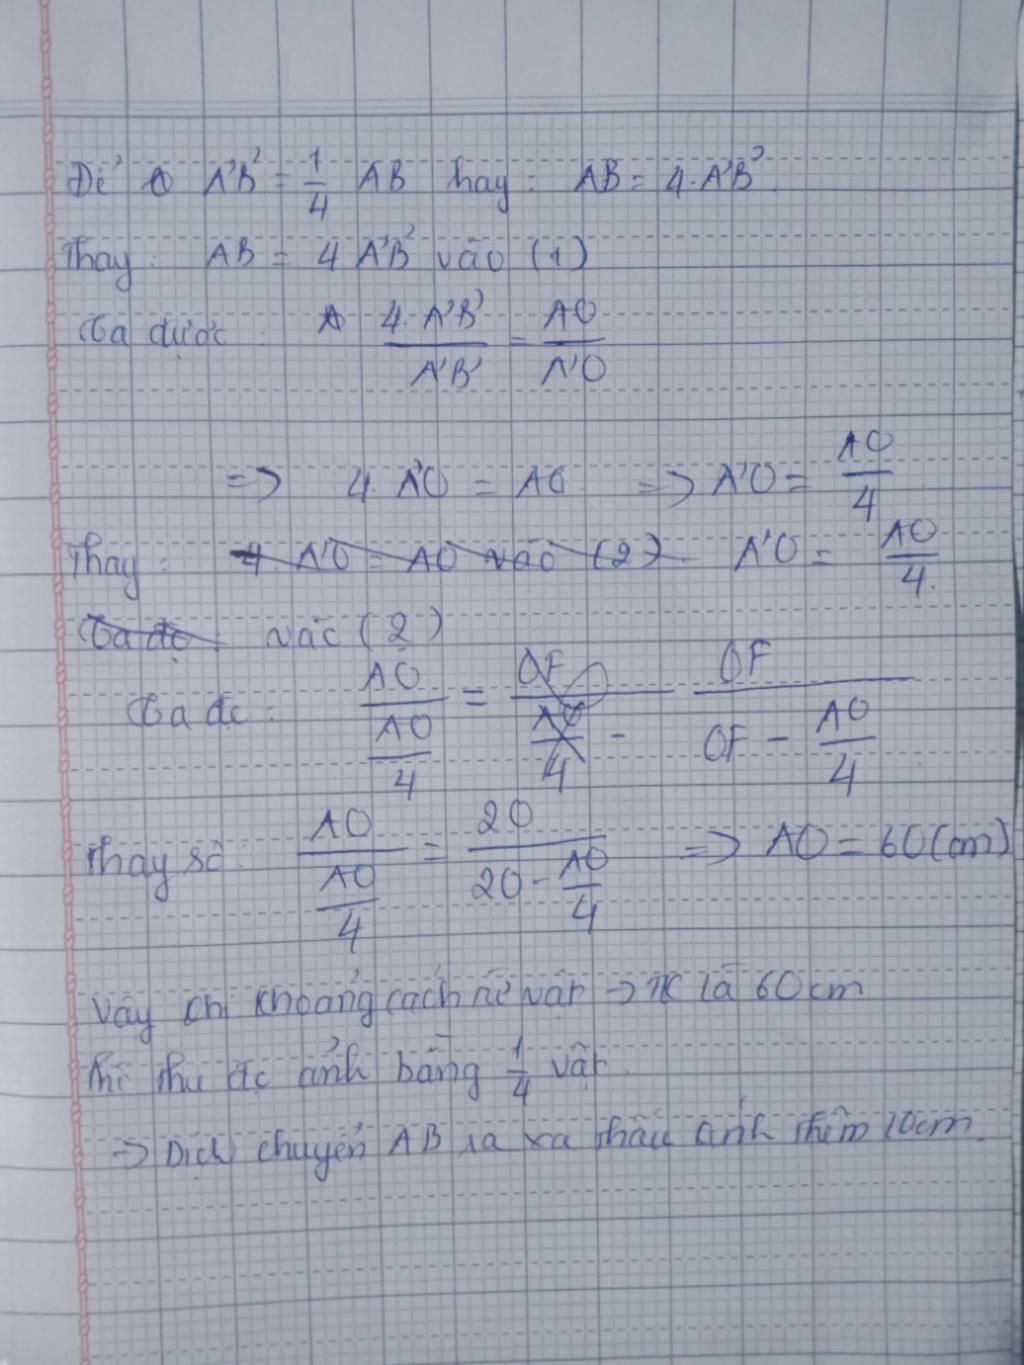 Để A'B' = 1/4 AB hay: AB = 4.A'B'
Thay: AB = 4 A'B' vào (1)
Ta được: 4.A'B'/A'B' = AO/A'O
=> 4.A'O = AO => A'O = AO/4
Thay: 4 A'O = AO vào (2) A'O = AO/4.
Ta đc: vào (2)
Ta đc: AO/(AO/4) = OF/(AO/4 - OF/(OF - AO/4)
Thay số: AO/(AO/4) = 20/(20 - AO/4) => AO = 60(cm)
Vậy khoảng cách từ vật -> TK là 60cm
thì thu đc ảnh bằng 1/4 vật.
-> Dịch chuyển AB ra xa thấu kính thêm 10cm.